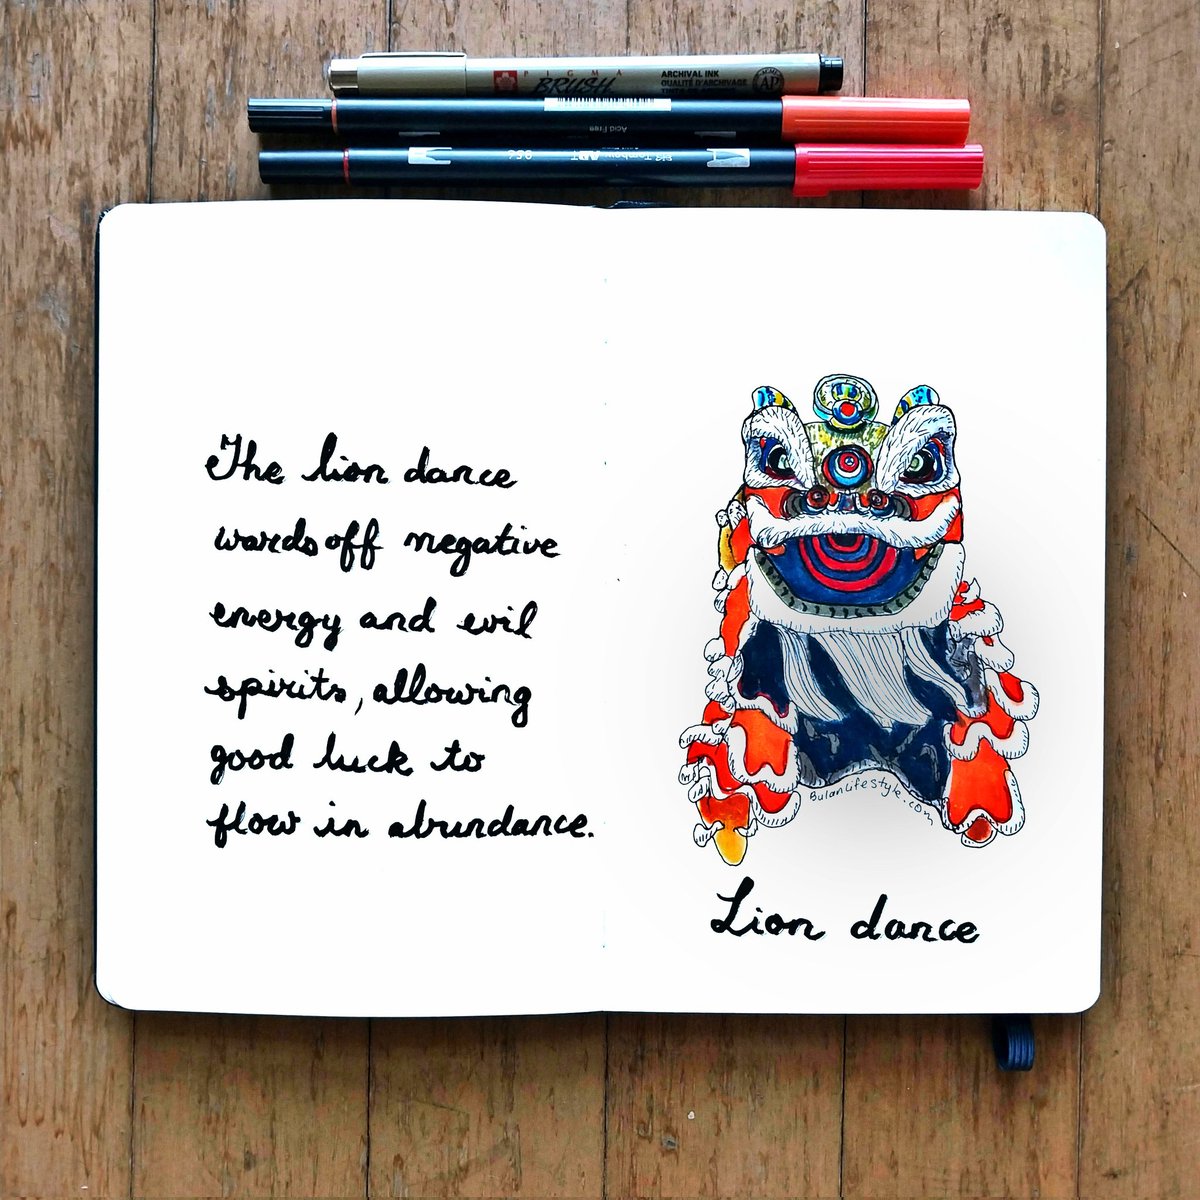 PIGMA
BRUSH
ARCHIVAL INK
QUALITÉ D'ARCHIVAGE
AP
Acid Free
Tombow ABT
The lion dance
wards off negative
energy and evil
spirits, allowing
good luck to
flow in abundance.
BulanLifestyle.com
Lion dance